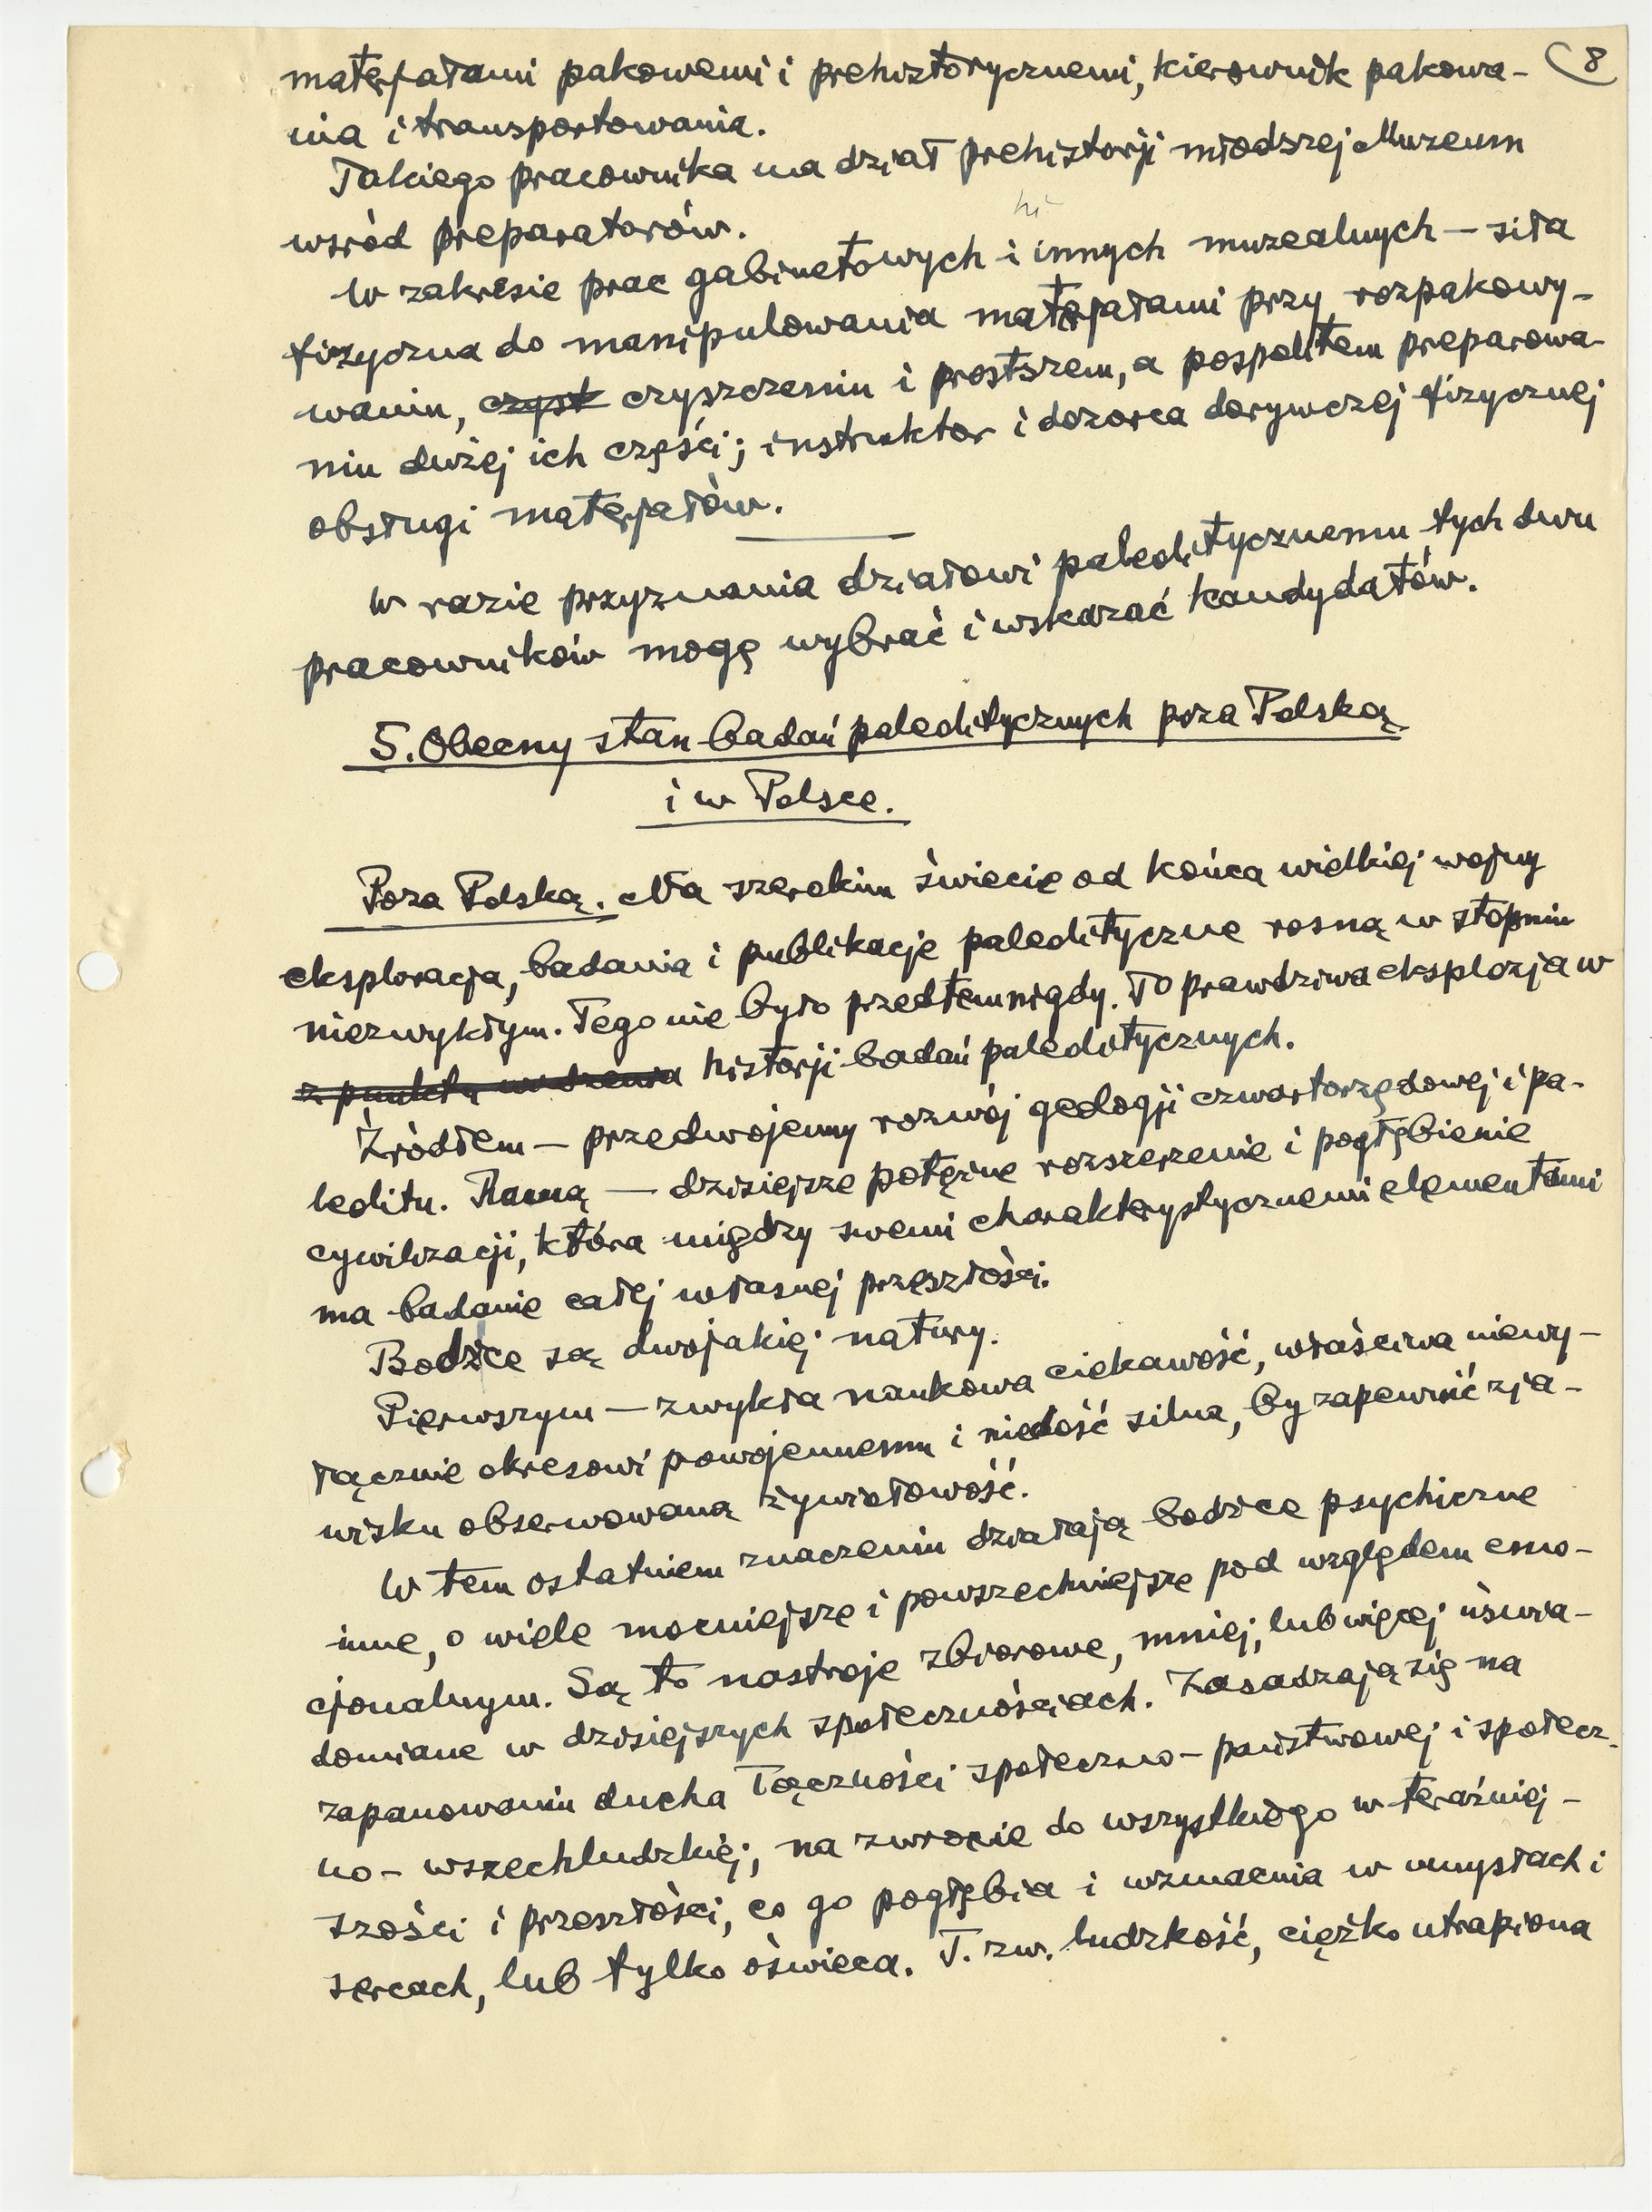 8
materjałami pakowemi i prehistorycznemi, kierownik pakowa-
nia i transportowania.
Takiego pracownika ma dział prehistorji młodszej Muzeum
wsród preparatorów.
W zakresie prac gabinetowych i innych muzealnych — siła
fizyczna do manipulowania materjałami przy rozpakowy-
waniu, czyst czyszczeniu i prostszem, a pospolitem preparowa-
niu dużej ich części; instruktor i dozorca dorywczej fizycznej
obsługi materjałów.
W razie przyznania działowi paleolitycznemu tych dwu
pracowników mogę wybrać i wskazać kandydatów.
5. Obecny stan badań paleolitycznych poza Polską
i w Polsce.
Poza Polską. Na szerokim świecie od końca wielkiej wojny
eksploracja, badania i publikacje paleolityczne rosną w stopniu
niezwykłym. Tego nie było przedtem nigdy. To prawdziwa eksplozja w
z punktu widzenia historji badań paleolitycznych.
Źródłem — przedwojenny rozwój geologji czwartorzędowej i pa-
leolitu. Ramą — dzisiejsze potężne rozszerzenie i pogłębienie
cywilizacji, która między swemi charakterystycznemi elementami
ma badanie całej własnej przeszłości.
Bodźce są dwojakiej natury.
Pierwszym — zwykła naukowa ciekawość, właściwa niewy-
łącznie okresowi powojennemu i niedość silna, by zapewnić zja-
wisku obserwowaną żywiołowość.
W tem ostatniem znaczeniu działają bodźce psychiczne
inne, o wiele mocniejsze i powszechniejsze pod względem emo-
cjonalnym. Są to nastroje zbiorowe, mniej, lub więcej uświa-
domiane w dzisiejszych społecznościach. Zasadzają się na
zapanowaniu ducha łączności społeczno-państwowej i społecz-
no-wszechludzkiej, na zwrocie do wszystkiego w teraźniej-
szości i przeszłości, co go pogłębia i wzmacnia w umysłach i
sercach, lub tylko oświeca. T. zw. ludzkość, ciężko utrapiona